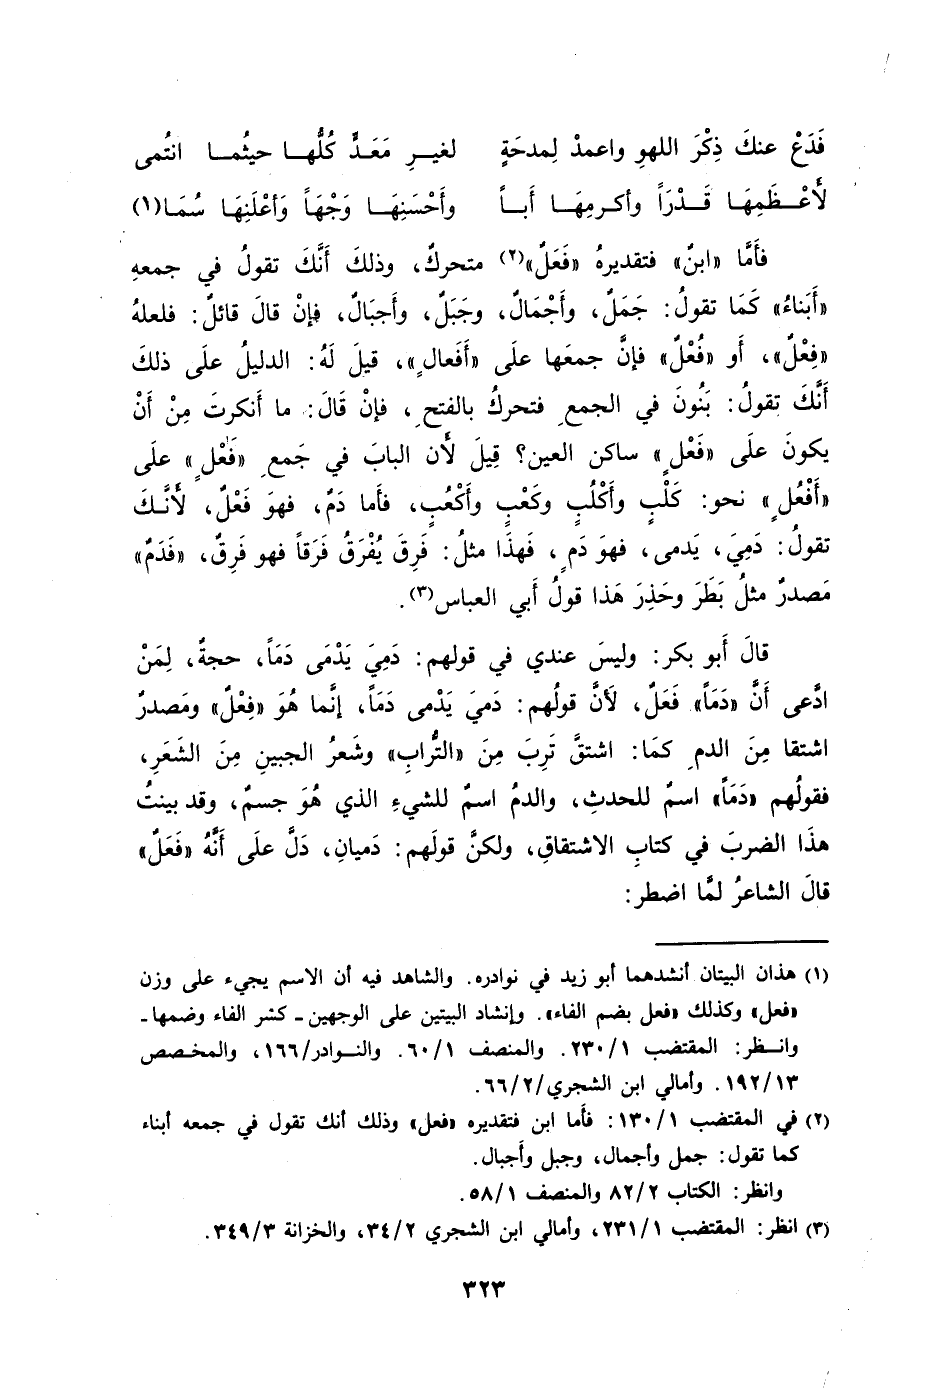 فَدَعْ عنكَ ذِكْرَ اللهوِ واعمدْ لِمدحَةٍ لغيرِ مَعَدٍّ كُلُّها حيثُما انتُمى
لأَعْظَمِهَا قَدْرَاً وأكرمِهَا أباً وأَحْسَنِهَا وَجْهَاً وَأعْلَنِهَا سُمَا(١)
فأَمَّا «ابنٌ» فتقديرهُ «فَعَلٌ»(٢) متحركٌ، وذلكَ أَنَّكَ تقولُ في جمعهِ
«أَبناءُ» كَمَا تقولُ: جَمَلٌ، وأَجْمَالٌ، وجَبَلٌ، وأَجبَالٌ، فإنْ قالَ قائلٌ: فلعلهُ
«فِعْلٌ»، أَو «فُعْلٌ» فإنَّ جمعَها علَى «أَفعال ٍ»، قيلَ لَهُ: الدليلُ علَى ذلكَ
أَنَّكَ تقولُ: بَنُونَ في الجمع ِ فتحركُ بالفتح ِ، فإنْ قَالَ: ما أَنكرتَ مِنْ أَنْ
يكونَ علَى «فَعْل ٍ» ساكن العين؟ قِيلَ لأَن البابَ في جَمع ِ «فَعْل ٍ» علَى
«أَفْعُل ٍ» نحو: كَلْبٍ وأَكْلُبٍ وكَعْبٍ وأَكْعُبٍ، فأَما دَمٌ، فهوَ فَعْلٌ، لأَنَّـكَ
تقولُ: دَمِيَ، يَدمى، فهوَ دَم ٍ، فَهذَا مثلُ: فَرِقَ يُفْرَقُ فَرَقاً فهو فَرِقٌ، «فَدَمٌ»
مَصدرٌ مثلُ بَطَرَ وحَذِرَ هَذا قولُ أَبي العباس(٣).
قالَ أَبو بكر: وليسَ عندي في قولهم: دَمِيَ يَدْمَى دَمَاً، حجةٌ، لِمَنْ
ادَّعى أَنَّ «دَمَاً» فَعَلٌ، لأَنَّ قولُهم: دَميَ يَدْمى دَمَاً، إنَّما هُوَ «فِعْلٌ» ومَصدرٌ
اشتقا مِنَ الدم ِ كمَا: اشتقَّ تَرِبَ مِنَ «التُّرابِ» وشَعرُ الجبينِ مِنَ الشَعَرِ،
فقولُهم «دَمَاً» اسمٌ للحدثِ، والدمُ اسمٌ للشيءِ الذي هُوَ جسمٌ، وقد بينتُ
هذَا الضربَ في كتابِ الاشتقاقِ، ولكنَّ قولَهم: دَميانِ، دَلَّ علَى أَنَّهُ «فَعَلٌ»
قالَ الشاعرُ لمَّا اضطر:
(١) هذان البيتان أنشدهما أبو زيد في نوادره. والشاهد فيه أن الاسم يجيء على وزن
«فعل» وكذلك «فعل بضم الفاء». وإنشاد البيتين على الوجهين ـ كشر الفاء وضمها ـ
وانـظر: المقتضب ٢٣٠/١. والمنصف ٦٠/١. والنـوادر/١٦٦، والمخـصص
١٩٢/١٣. وأمالي ابن الشجري/٦٦/٢.
(٢) في المقتضب ١٣٠/١: فأما ابن فتقديره «فعل» وذلك أنك تقول في جمعه أبناء
كما تقول: جمل وأجمال، وجبل وأجبال.
وانظر: الكتاب ٨٢/٢ والمنصف ٥٨/١.
(٣) انظر: المقتضب ٢٣١/١، وأمالي ابن الشجري ٣٤/٢، والخزانة ٣٤٩/٣.
٣٢٣